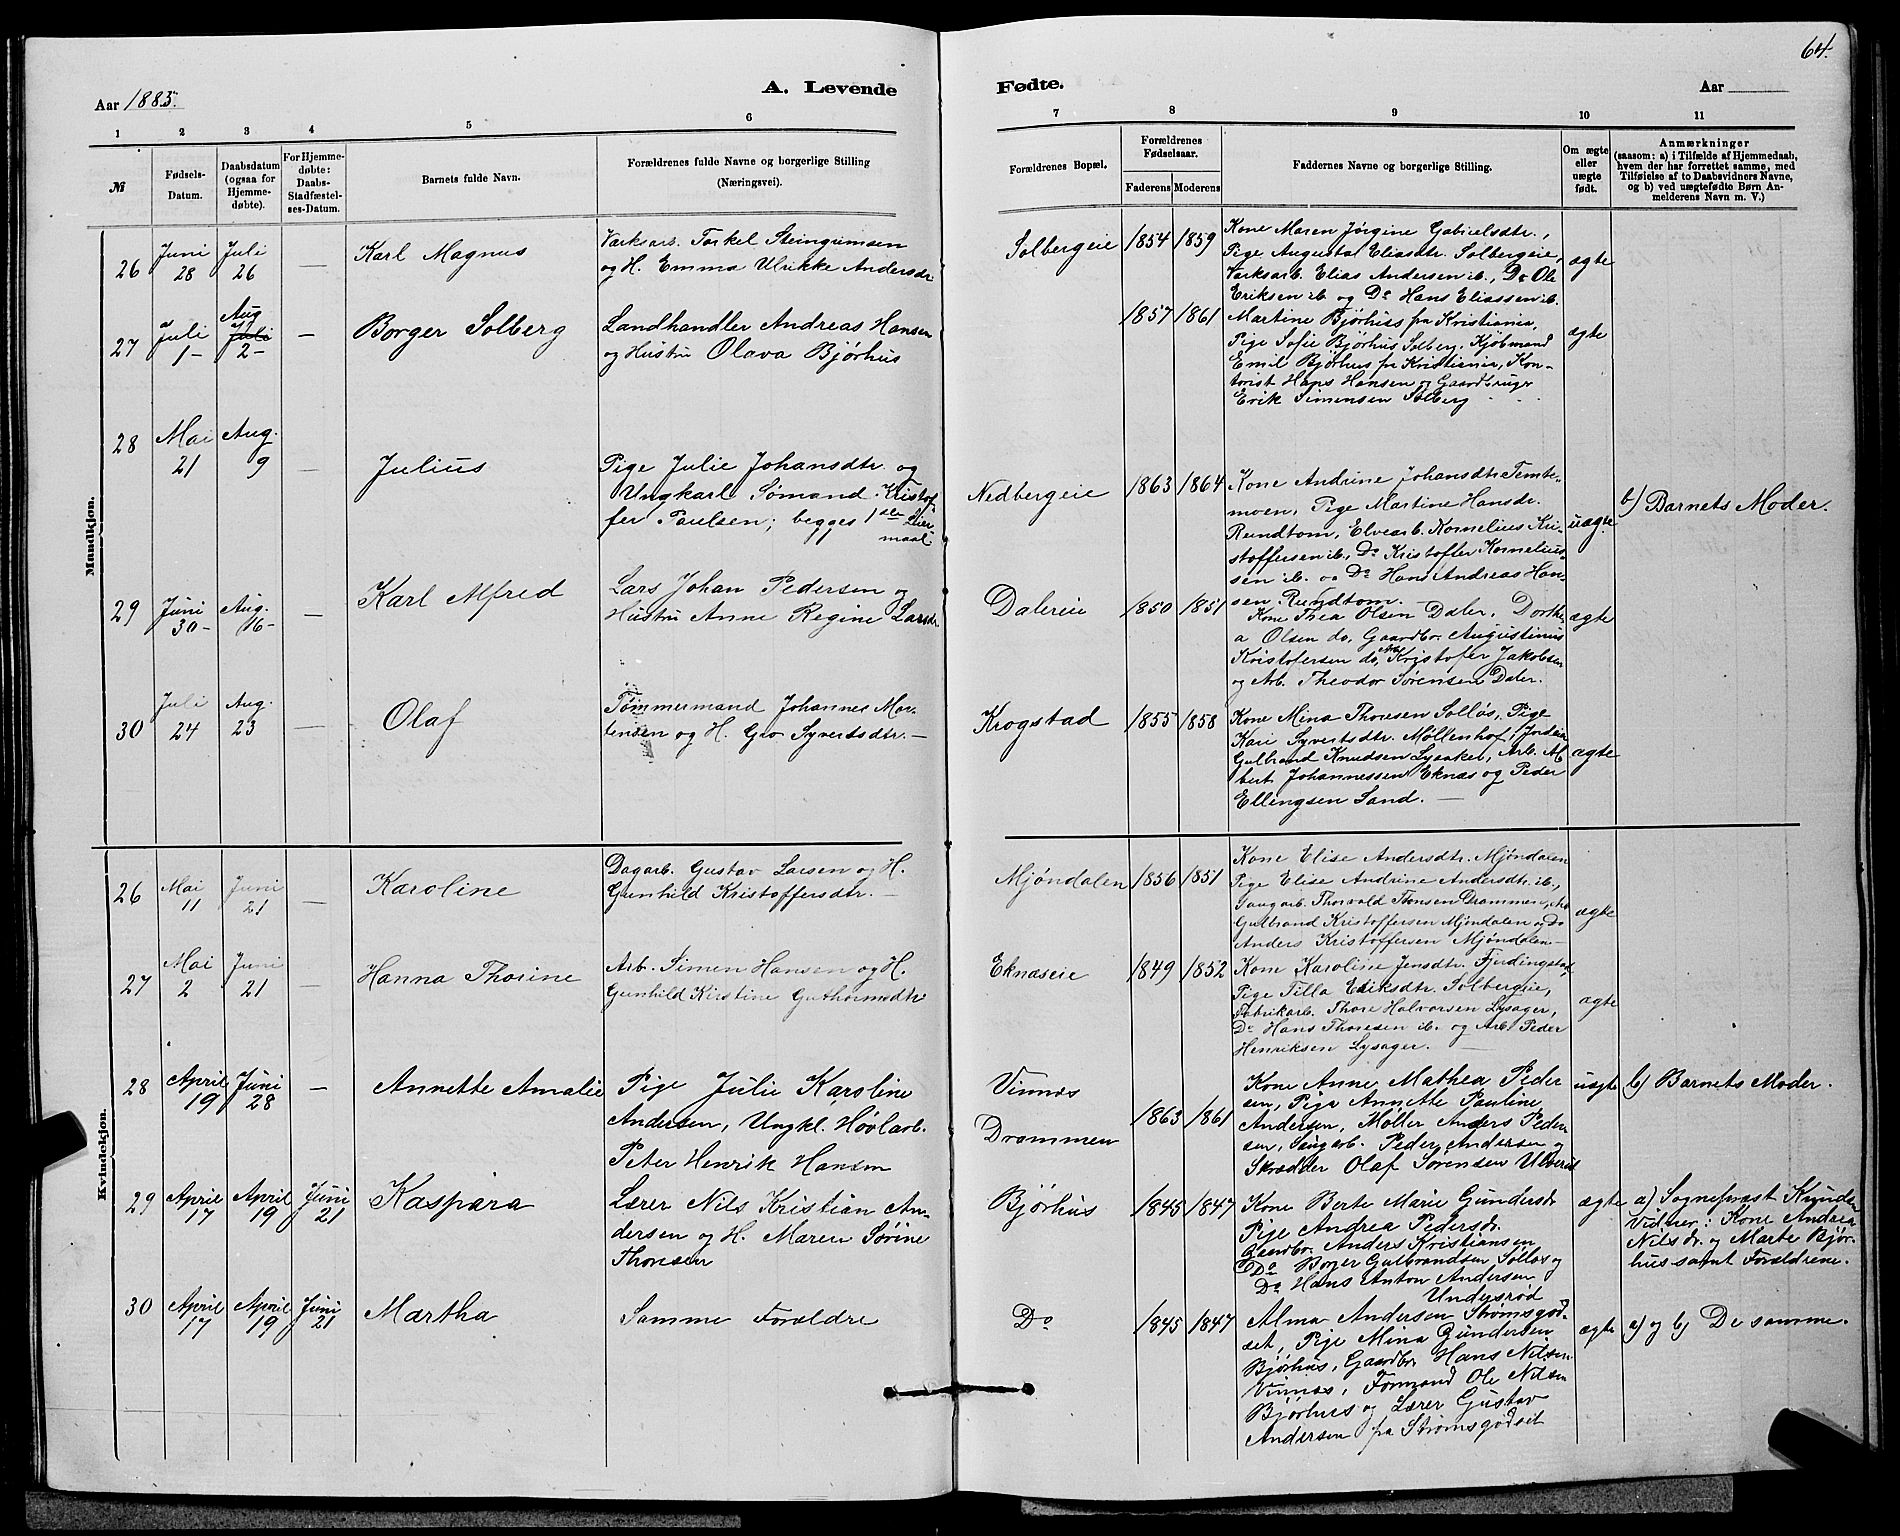 64.
Aar 1885.
A. Levende
Fødte.
Aar
1 2 3 4 5 6 7 8 9 10 11
№
Fødsels-
Datum.
Daabsdatum
(ogsaa for
Hjemme-
døbte).
For Hjemme-
døbte:
Daabs-
Stadfæstel-
ses-Datum.
Barnets fulde Navn.
Forældrenes fulde Navne og borgerlige Stilling
(Næringsvei).
Forældrenes Bopæl.
Forældrenes
Fødselsaar.
Faderens Moderens
Faddernes Navne og borgerlige Stilling.
Om ægte
eller
uægte
født.
Anmærkninger
(saasom: a) i Tilfælde af Hjemmedaab,
hvem der har forrettet samme, med
Tilføielse af to Daabsvidners Navne,
og b) ved uægtefødte Børn An-
melderens Navn m. V.)
Mandkjøn.
26
Juni
28
Juli
26
—
Karl Magnus
Værksarb. Torkel Steingrimsen
og H. Emma Ulrikke Andersdr.
Solbergeie
1854 1859
Kone Maren Jørgine Gabrielsdtr.,
Pige Augusta Eliasdtr. Solbergeie,
Værksarb. Elias Andersen ib., Do Ole
Eriksen ib og Do Hans Eliassen ib.
ægte
27
Juli
1-
Aug
Juli
2-
—
Borger Solberg
Landhandler Andreas Hansen
og Hustru Olava Bjørhus
1857 1861
Martine Bjørhus fra Kristiania,
Pige Sofie Bjørhus Solberg, Kjøbmand
Emil Bjørhus fra Kristiania, Kon-
torist Hans Hansen og Gaardbruger
Erik Simensen Solberg
ægte
28
Mai
21
Aug.
9
—
Julius
Pige Julie Johansdtr. og
Ungkarl Sømand Kristof-
fer Paulsen; begges 1ste Leier-
maal.
Nedbergeie
1863 1864
Kone Andrine Johansdtr. Tembe-
moen, Pige Martine Hansdr.
Rundtom, Elvearb. Kornelius Kri-
stoffersen ib., Do Kristoffer Kornelius-
sen ib. og Do Hans Andreas Han-
sen Rundtom.
uægte
b) Barnets Moder.
29
Juni
30-
Aug.
16-
—
Karl Alfred
Lars Johan Pedersen og
Hustru Anne Regine Larsdr.
Dalereie
1850 1851
Kone Thea Olsen Daler, Dorthe-
a Olsen do, Gaardbr. Augustinus
Kristofersen do, Kristofer Jakobsen
og Arb. Theodor Sørensen Daler.
ægte
30
Juli
24
Aug.
23
—
Olaf
Tømmermand Johannes Mor-
tensen og H. Gro Syvertsdtr. —
Krogstad
1855 1858
Kone Mina Thoresen Solløs, Pige
Kari Syvertsdtr. Møllenhof,
Gulbrand Knudsen Lysaker, Arb. Al-
bert Johannessen Eknæs og Peder
Ellingsen Sand. —
ægte
Kvindekjøn.
26
Mai
11
Juni
21
—
Karoline
Dagarb. Gustav Larsen og H.
Gunhild Kristoffersdtr. —
Mjøndalen
1856 1851
Kone Elise Andersdtr. Mjøndalen
Pige Elise Andrine Andersdtr. ib.,
Saugarb. Thorvald Tonsen Drammen, Arb
Gulbrand Kristoffersen Mjøndalen og Do
Anders Kristoffersen Mjøndalen —
ægte
27
Mai
2
Juni
21
—
Hanna Thorine
Arb. Simen Hansen og H.
Gunhild Kirstine Guthormsdtr
Eknæseie
1849 1852
Kone Karoline Jensdtr. Fjerdingstad
Pige Tilla Eriksdtr. Solbergeie,
Fabrikarb. Thore Halvorsen Lysager,
Do Hans Thoresen ib. og Arb Peder
Henriksen Lysager. —
ægte
28
April
19
Juni
28
—
Annette Amalie
Pige Julie Karoline
Andersen, Ungkl. Høvlarb.
Peter Henrik Hansen
Vinnæs
Drammen
1863 1861
Kone Anne Mathea Peder
sen, Pige Annette Pauline
Andersen, Møller Anders Peder-
sen, Saugarb. Peder Andersen og
Skrædder Olaf Sørensen Ulverud
uægte
b) Barnets Moder.
29
April
17
April
19
Juni
21
Kaspara
Lærer Nils Kristian An-
dersen og H. Maren Sørine
Thoresen
Bjørhus
1845 1847
Kone Berte Marie Gundersdr
Pige Andrea Pedersdr.
Gaardbr. Anders Kristiansen
Do Borger Gulbrandsen Solløs og
Do Hans Anton Andersen
Undersrød
ægte
a) Sognepræst Knudsen
Vidner: Kone Andrea
Nilsdr. og Marte Bjør-
hus samt Forældrene.
30
April
17
April
19
Juni
21
Martha
Samme Forældre
Do
1845 1847
Alma Andersen Strømsgod-
set, Pige Mina Gundersen
Bjørhus, Gaardbr. Hans Nilsen
Vinnæs, Formand Ole Nilsen
Bjørhus og Lærer Gustav
Andersen fra Strømsgodset
ægte
a) og b) De samme.